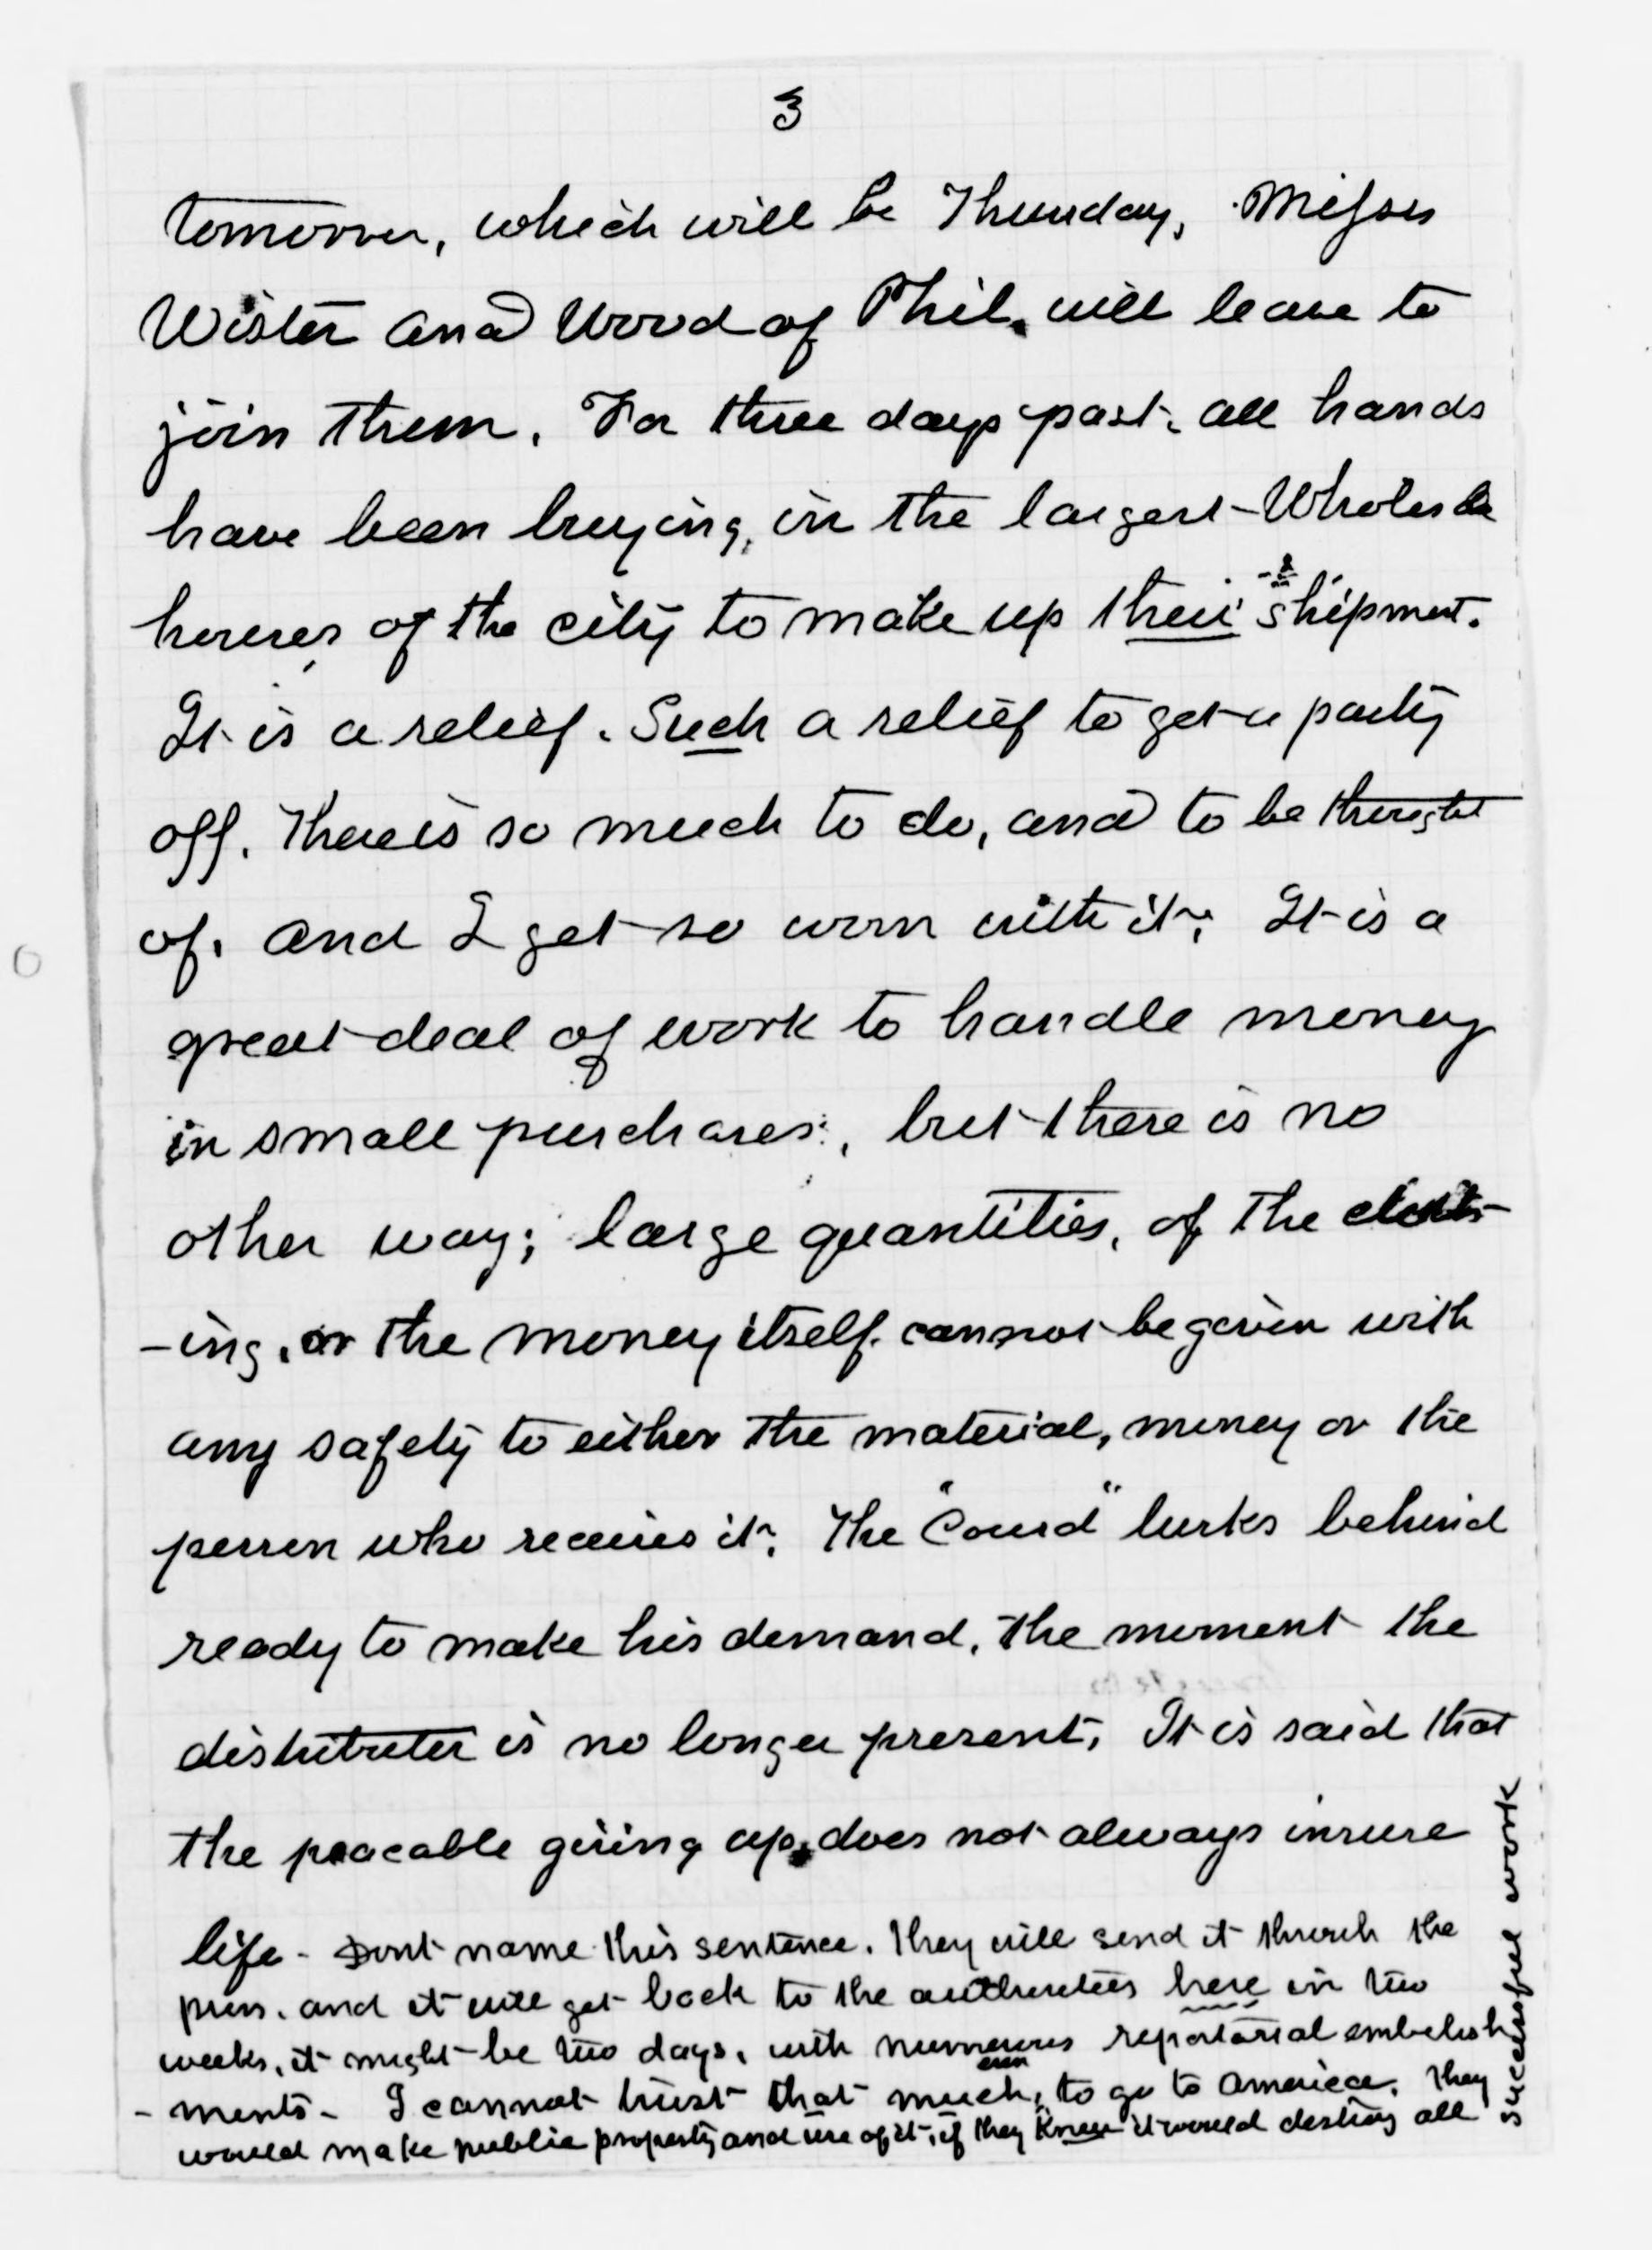 3
tomorrow, which will be Thursday, Messrs
Wister and Wood of Phil. will leave to
join them. For three days past, all hands
have been buying, in the largest Wholesale
houses of the city to make up their shipment.
It is a relief. Such a relief to get a party
off. There is so much to do, and to be thought
of. and I get so worn with it. It is a
great deal of work to handle money
in small purchases, but there is no
other way; large quantities, of the cloth-
-ing, or the money itself cannot be given with
any safety to either the material, money or the
person who receives it. The "Courd" lurks behind
ready to make his demand, the moment the
distributer is no longer present. It is said that
the peacable giving up, does not always insure
life - Dont name this sentence. They will send it through the
press. and it will get back to the authorities here in two
weeks, it might be two days, with numerous reportorial embelish
- ments - I cannot trust that much, even to go to America. They
would make public property and use of it, if they knew it would destroy all
successful work